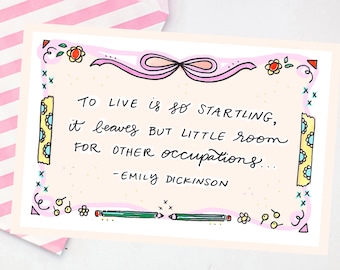 TO LIVE IS SO STARTLING,
it leaves BUT LITTLE room
FOR OTHER occupations...
-EMILY DICKINSON